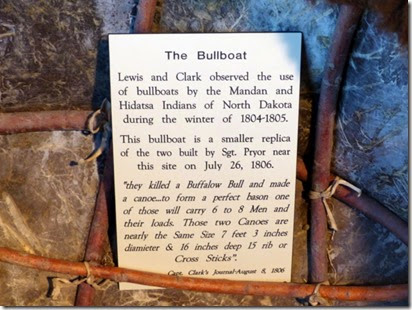 The Bullboat
Lewis and Clark observed the use
of bullboats by the Mandan and
Hidatsa Indians of North Dakota
during the winter of 1804-1805.
This bullboat is a smaller replica
of the two built by Sgt. Pryor near
this site on July 26, 1806.
"they killed a Buffalow Bull and made
a canoe...to form a perfect bason one
of those will carry 6 to 8 Men and
their loads. Those two Canoes are
nearly the Same Size 7 feet 3 inches
diamieter & 16 inches deep 15 rib or
Cross Sticks".
Capt. Clark's Journal-August 8, 1806